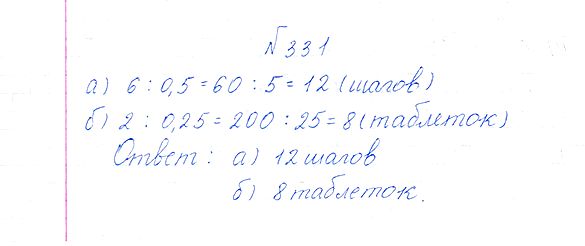 №331
а) 6 : 0,5 = 60 : 5 = 12 (шагов)
б) 2 : 0,25 = 200 : 25 = 8 (таблеток)
Ответ : а) 12 шагов
б) 8 таблеток.